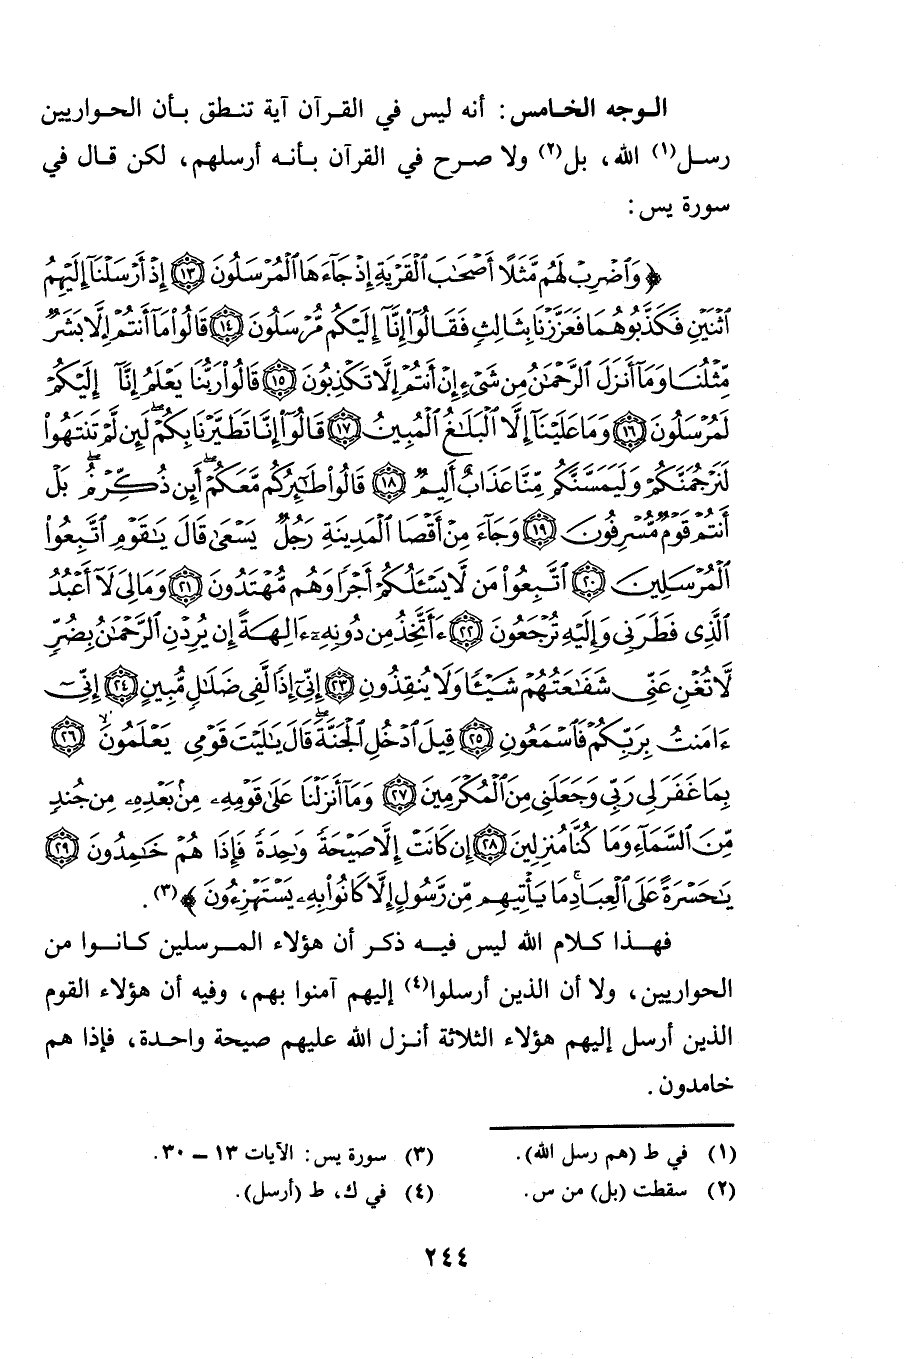 الـوجه الخـامس: أنه ليس في القـرآن آية تنـطق بـأن الحـواريين
رسـل(١) الله، بل(٢) ولا صـرح في القرآن بـأنـه أرسلهم، لكن قـال في
سورة يس:
﴿ وَٱضْرِبْ لَهُم مَّثَلًا أَصْحَٰبَ ٱلْقَرْيَةِ إِذْ جَآءَهَا ٱلْمُرْسَلُونَ ١٣ إِذْ أَرْسَلْنَآ إِلَيْهِمُ
ٱثْنَيْنِ فَكَذَّبُوهُمَا فَعَزَّزْنَا بِثَالِثٍ فَقَالُوٓا۟ إِنَّآ إِلَيْكُم مُّرْسَلُونَ ١٤ قَالُوا۟ مَآ أَنتُمْ إِلَّا بَشَرٌ
مِّثْلُنَا وَمَآ أَنزَلَ ٱلرَّحْمَٰنُ مِن شَىْءٍ إِنْ أَنتُمْ إِلَّا تَكْذِبُونَ ١٥ قَالُوا۟ رَبُّنَا يَعْلَمُ إِنَّآ إِلَيْكُمْ
لَمُرْسَلُونَ ١٦ وَمَا عَلَيْنَآ إِلَّا ٱلْبَلَٰغُ ٱلْمُبِينُ ١٧ قَالُوٓا۟ إِنَّا تَطَيَّرْنَا بِكُمْ ۖ لَئِن لَّمْ تَنتَهُوا۟
لَنَرْجُمَنَّكُمْ وَلَيَمَسَّنَّكُم مِّنَّا عَذَابٌ أَلِيمٌ ١٨ قَالُوا۟ طَٰٓئِرُكُم مَّعَكُمْ ۚ أَئِن ذُكِّرْتُم ۚ بَلْ
أَنتُمْ قَوْمٌ مُّسْرِفُونَ ١٩ وَجَآءَ مِنْ أَقْصَا ٱلْمَدِينَةِ رَجُلٌ يَسْعَىٰ قَالَ يَٰقَوْمِ ٱتَّبِعُوا۟
ٱلْمُرْسَلِينَ ٢٠ ٱتَّبِعُوا۟ مَن لَّا يَسْـَٔلُكُمْ أَجْرًا وَهُم مُّهْتَدُونَ ٢١ وَمَا لِىَ لَآ أَعْبُدُ
ٱلَّذِى فَطَرَنِى وَإِلَيْهِ تُرْجَعُونَ ٢٢ ءَأَتَّخِذُ مِن دُونِهِۦٓ ءَالِهَةً إِن يُرِدْنِ ٱلرَّحْمَٰنُ بِضُرٍّ
لَّا تُغْنِ عَنِّى شَفَٰعَتُهُمْ شَيْـًٔا وَلَا يُنقِذُونِ ٢٣ إِنِّىٓ إِذًا لَّفِى ضَلَٰلٍ مُّبِينٍ ٢٤ إِنِّىٓ
ءَامَنتُ بِرَبِّكُمْ فَٱسْمَعُونِ ٢٥ قِيلَ ٱدْخُلِ ٱلْجَنَّةَ ۖ قَالَ يَٰلَيْتَ قَوْمِى يَعْلَمُونَ ٢٦
بِمَا غَفَرَ لِى رَبِّى وَجَعَلَنِى مِنَ ٱلْمُكْرَمِينَ ٢٧ وَمَآ أَنزَلْنَا عَلَىٰ قَوْمِهِۦ مِنۢ بَعْدِهِۦ مِن جُندٍ
مِّنَ ٱلسَّمَآءِ وَمَا كُنَّا مُنزِلِينَ ٢٨ إِن كَانَتْ إِلَّا صَيْحَةً وَٰحِدَةً فَإِذَا هُمْ خَٰمِدُونَ ٢٩
يَٰحَسْرَةً عَلَى ٱلْعِبَادِ ۚ مَا يَأْتِيهِم مِّن رَّسُولٍ إِلَّا كَانُوا۟ بِهِۦ يَسْتَهْزِءُونَ ﴾(٣).
فهـذا كـلام الله ليس فيـه ذكـر أن هؤلاء المـرسلين كـانـوا من
الحواريين، ولا أن الذين أرسلوا(٤) إليهم آمنوا بهم، وفيه أن هؤلاء القوم
الذين أرسل إليهم هؤلاء الثلاثة أنـزل الله عليهم صيحة واحـدة، فإذا هم
خامدون.
(١) في ط (هم رسل الله).
(٢) سقطت (بل) من س.
(٣) سورة يس: الآيات ١٣ – ٣٠.
(٤) في ك، ط (أرسل).
٢٤٤